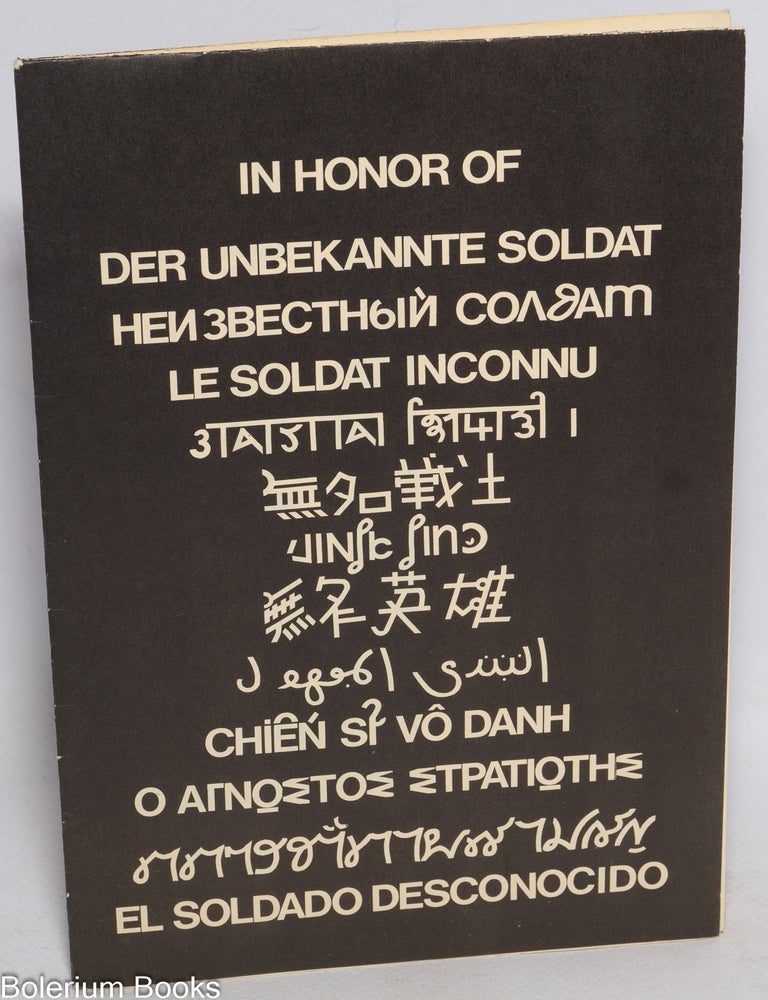 IN HONOR OF
DER UNBEKANNTE SOLDAT
НЕИЗВЕСТНЫЙ СОЛДАТ
LE SOLDAT INCONNU
無名戦士
無名英雄
المجهول
CHIẾN SỈ VÔ DANH
Ο ΑΓΝΩΣΤΟΣ ΣΤΡΑΤΙΩΤΗΣ
EL SOLDADO DESCONOCIDO
Bolerium Books